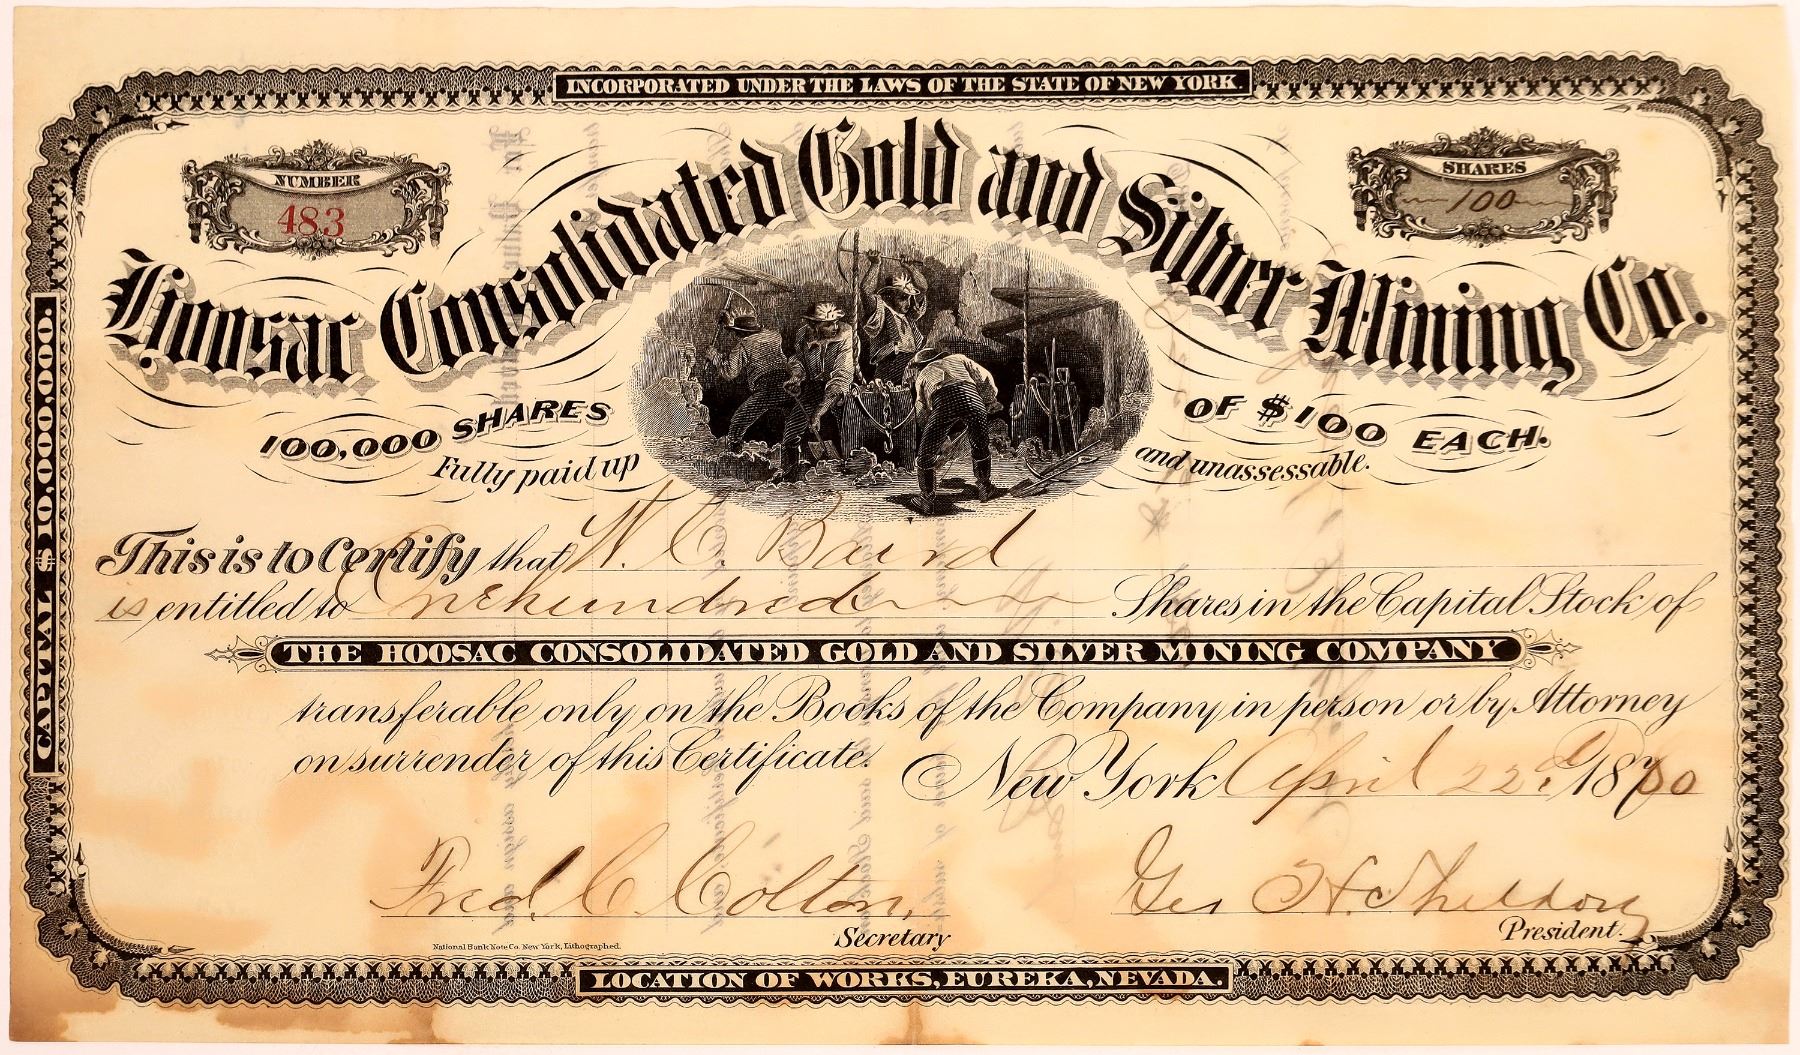 INCORPORATED UNDER THE LAWS OF THE STATE OF NEW YORK.
NUMBER
483
SHARES
100
Hoosac Consolidated Gold and Silver Mining Co.
100,000 SHARES OF $100 EACH.
Fully paid up and unassessable.
CAPITAL $10,000,000.
This is to Certify that W. C. Baird
is entitled to One hundred Shares in the Capital Stock of
THE HOOSAC CONSOLIDATED GOLD AND SILVER MINING COMPANY
transferable only on the Books of the Company in person or by Attorney
on surrender of this Certificate. New York April 22d 1880
Fred. C. Colton, Geo H. Sheldon
Secretary President.
National Bank Note Co. New York, Lithographed.
LOCATION OF WORKS, EUREKA, NEVADA.